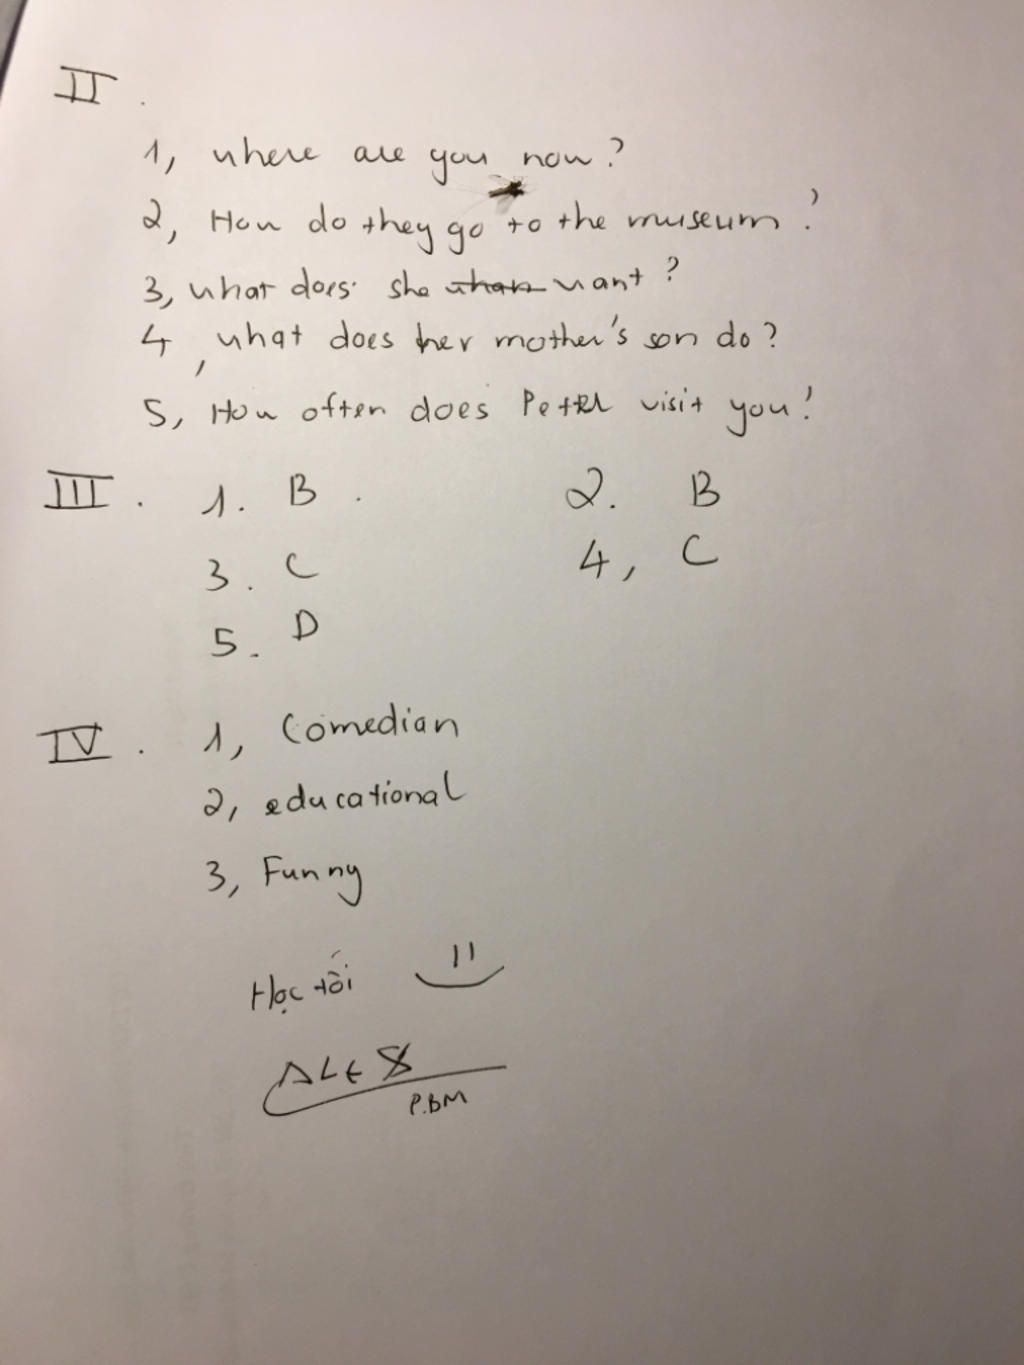 II.
1, where are you now?
2, How do they go to the museum?
3, what does she want?
4, what does her mother's son do?
5, How often does Peter visit you?
III. 1. B. 2. B
3. C 4, C
5. D
IV. 1, Comedian
2, educational
3, Funny
Học tối
ALEX
P.BM